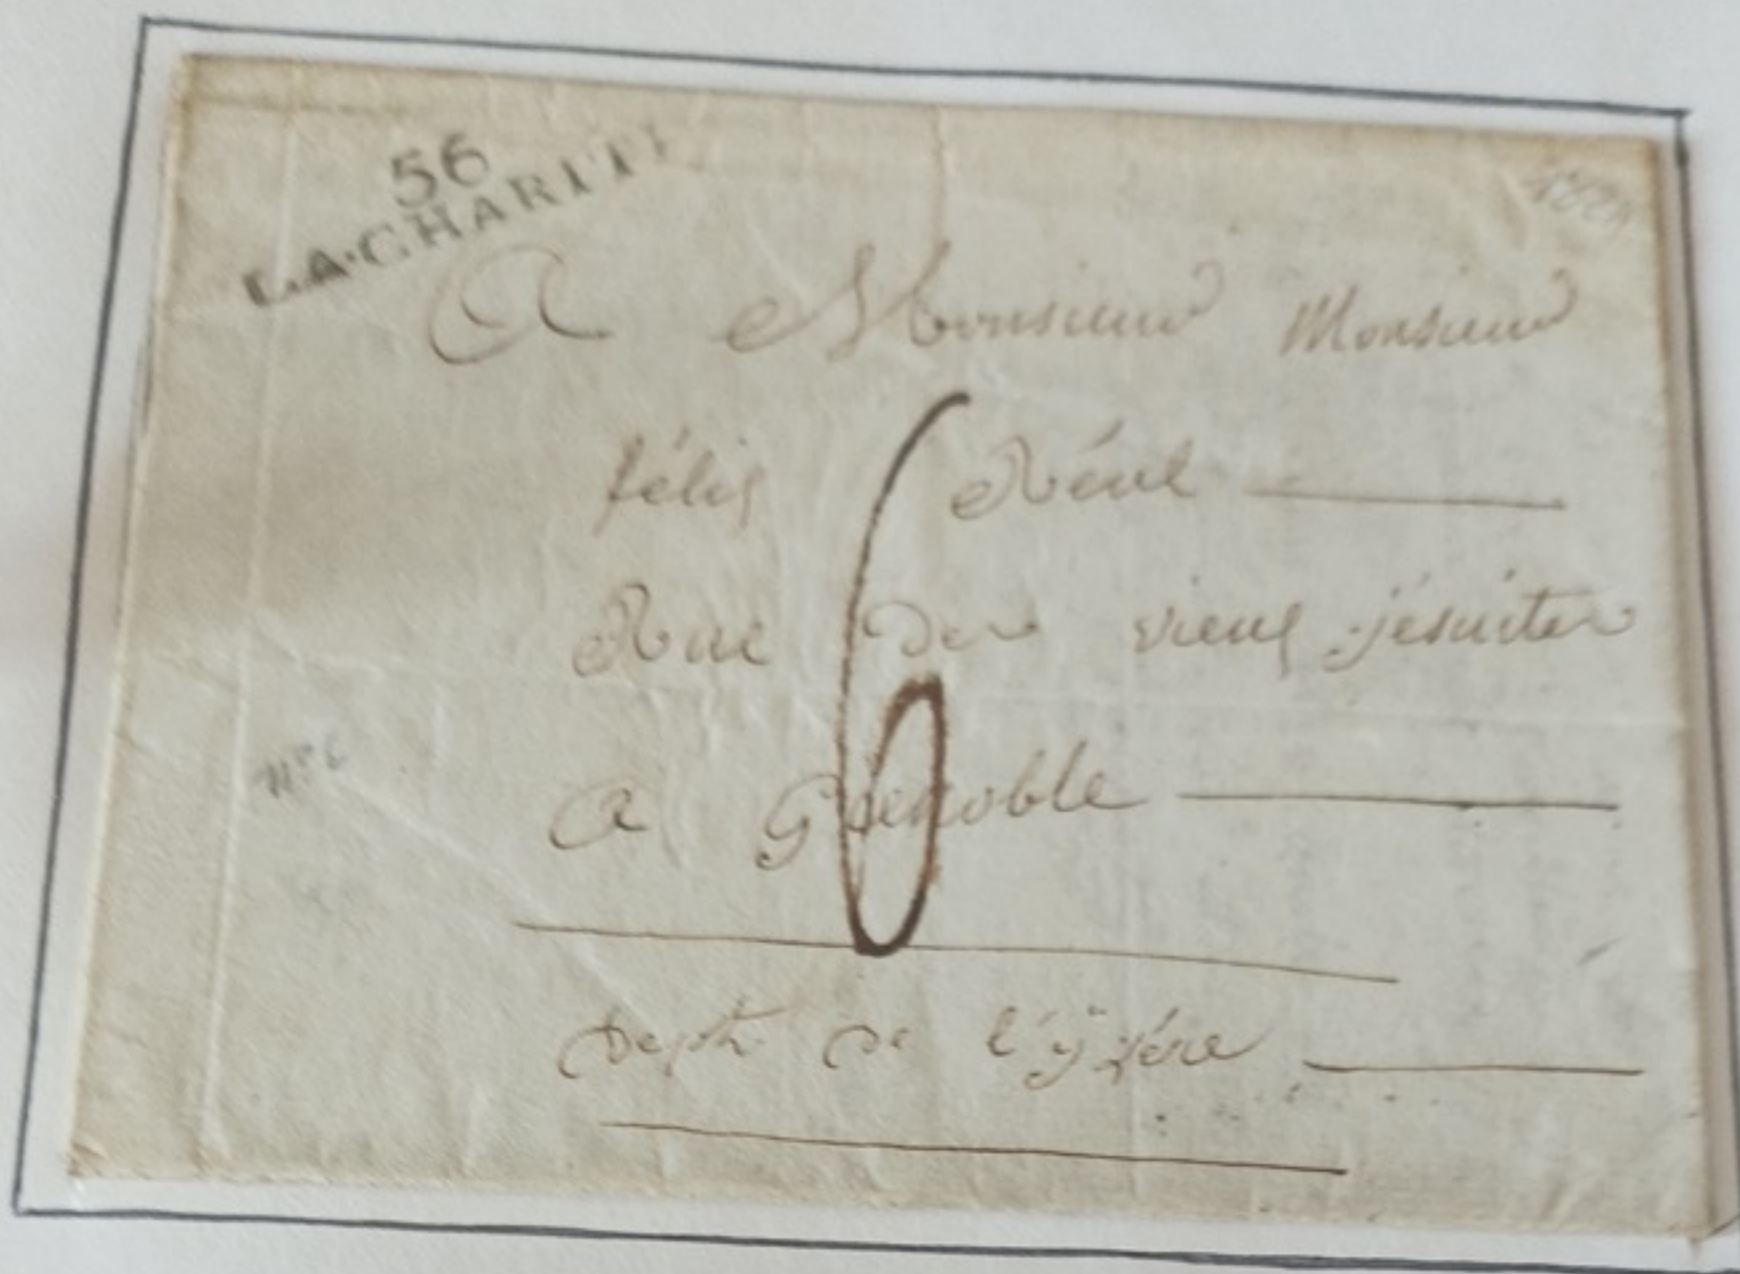 56
LA·CHARITÉ
A Monsieur Monsieur
félix Réal
Rue des vieux jésuites
6
a Grenoble
Dept. de l'ÿzére